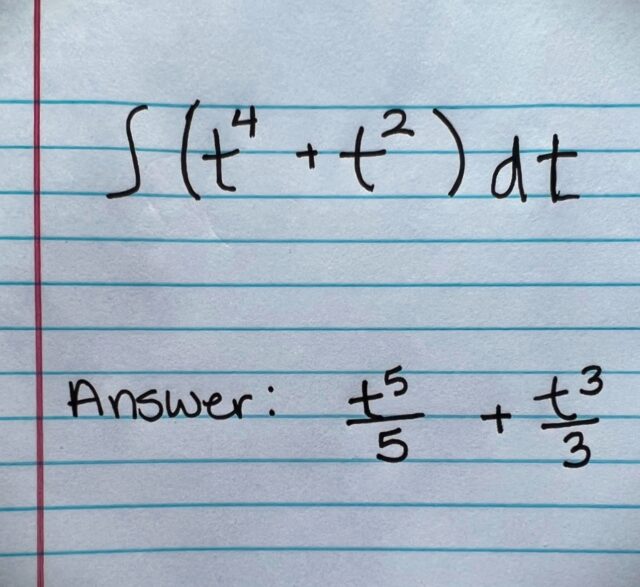 ∫(t⁴ + t²) dt
Answer: t⁵/5 + t³/3